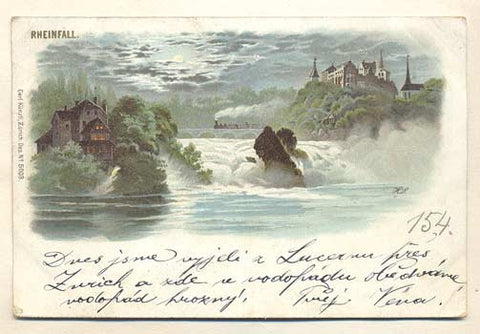 RHEINFALL.
Carl Künzli, Zürich Dep. Nº 5003.
154.
Dnes jsme vyjeli z Lucernu přes
Zurich a zde u vodopádu obědváme
vodopád hrozný! Tvůj Véna!